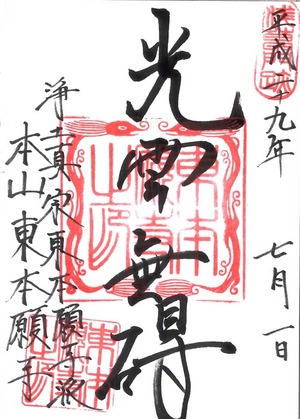 平成廿九年 七月一日
光雲無碍
浄土真宗東本願寺派
本山東本願寺
東本願寺之印